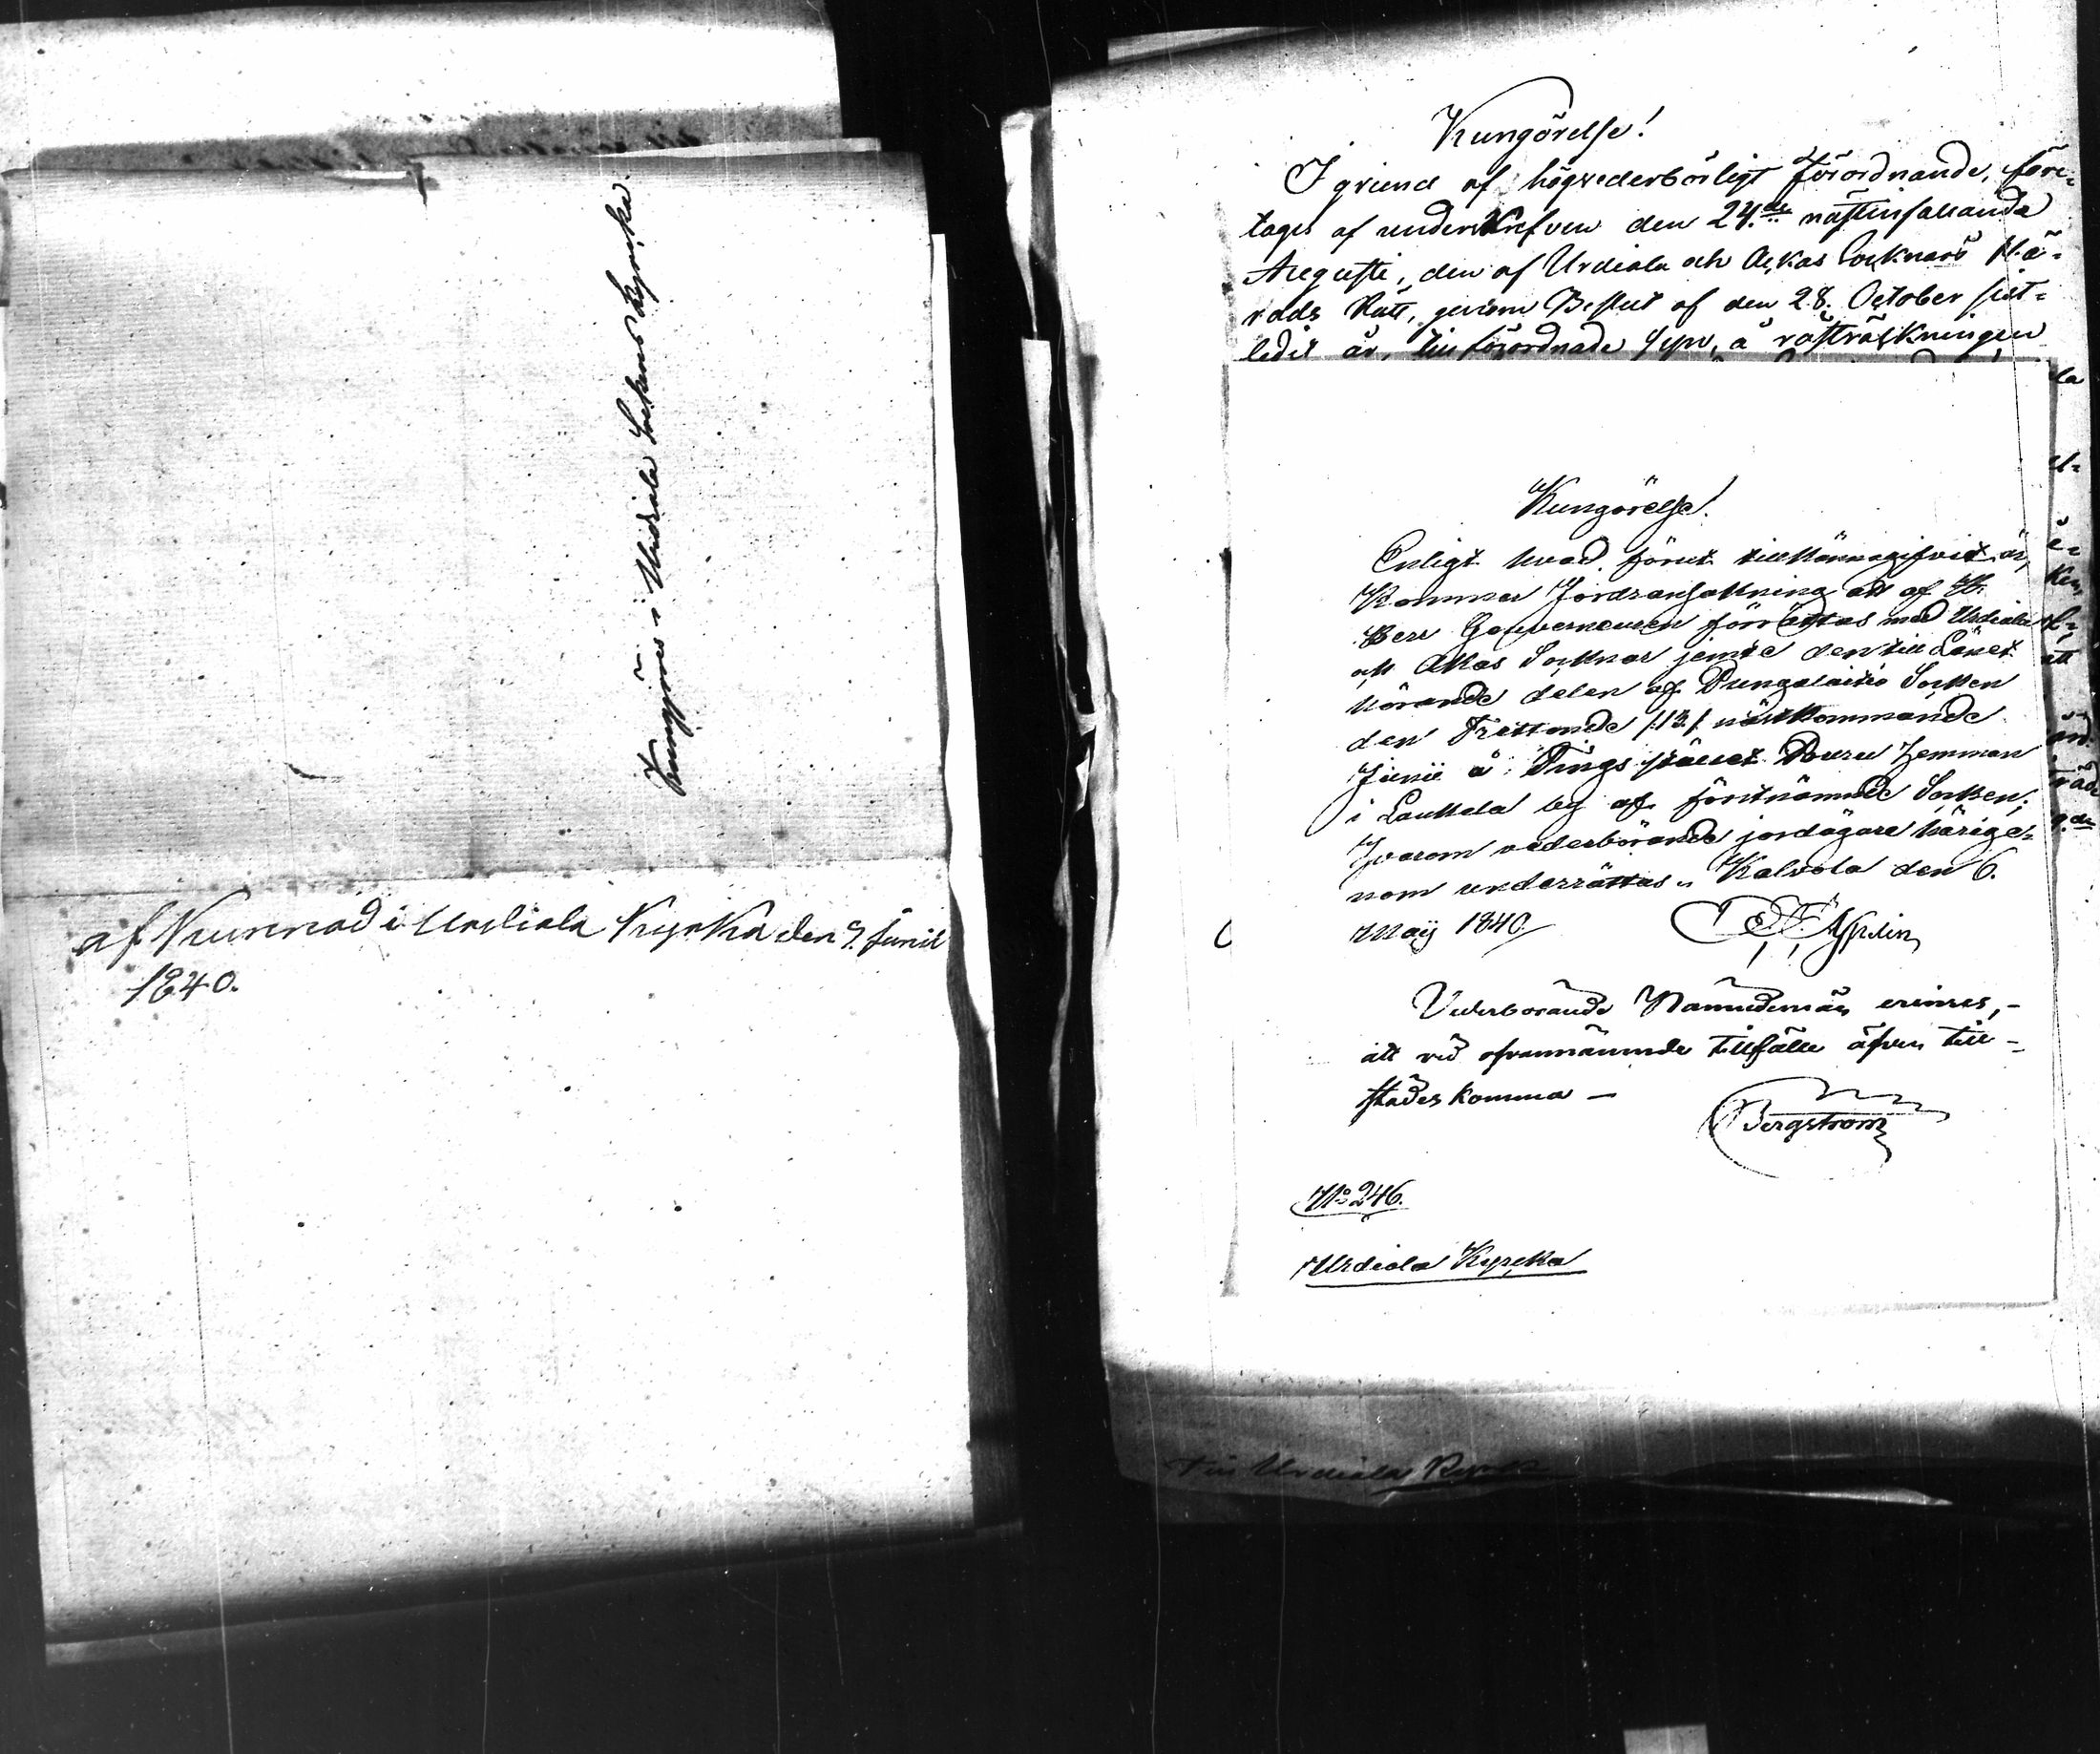 Kungjöres i Urdiala Sockens Kyrcka.
af Kunnad i Urdiala Kyrka den 7. Junii
1840.
Kungörelse!
I grund af högvederbörligt förordnande, före-
tages af undertekn den 24.de nästinfallande
Augusti, den af Urdiala och Ackas Socknars Hä-
rads Rätt, genom Beslut af den 28. October sist-
ledit år, förordnade Syn, å
Kungörelse!
Enligt hvad förut tillkännagifvit är,
kommer Jordransakning att af H.
Herr Gouverneuren förrättas med Urdiala
och Akas Socknar jemte den till Länet
hörande delen af Pungalaitio Socken
den Trettonde /:13:/ nästkommande
Junii å Tings stället Bouru hemman
i Laukela by af förstnämnde Socken;
Hvarom vederbörande jordägare härige-
nom underrättas. Kalvola den 6.
Maij 1840.
Vederbörande Nämndemän erinres,
att vid ofvannämnde tillfälle äfven till-
städes komma —
Bergstrom
No 246.
Urdiala Kyrcka
Till Urdiala Kyrck